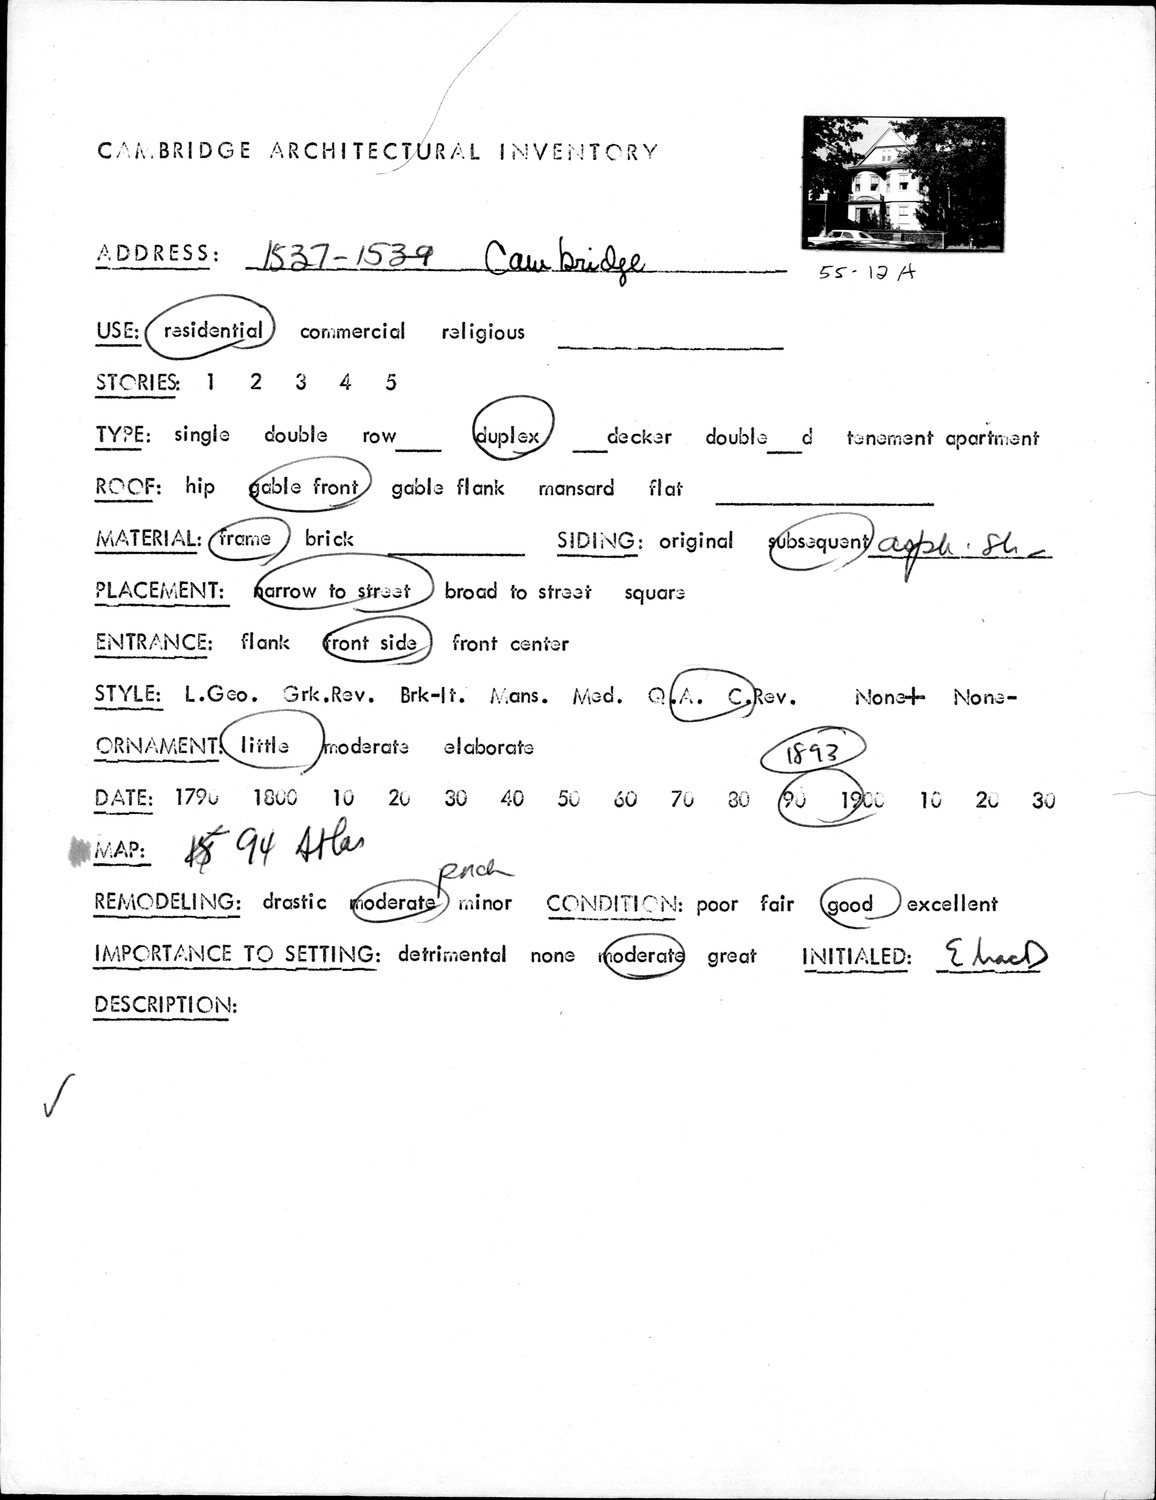 CAMBRIDGE ARCHITECTURAL INVENTORY
ADDRESS: 1537-1539 Cambridge
55-12A
USE: residential commercial religious
STORIES: 1 2 3 4 5
TYPE: single double row___ duplex ___decker double___d tenement apartment
ROOF: hip gable front gable flank mansard flat
MATERIAL: frame brick SIDING: original subsequent asph. sh
PLACEMENT: narrow to street broad to street square
ENTRANCE: flank front side front center
STYLE: L.Geo. Grk.Rev. Brk-It. Mans. Med. Q.A. C.Rev. None+ None-
ORNAMENT: little moderate elaborate
1893
DATE: 1790 1800 10 20 30 40 50 60 70 80 90 1900 10 20 30
MAP: 94 Atlas
porch
REMODELING: drastic moderate minor CONDITION: poor fair good excellent
IMPORTANCE TO SETTING: detrimental none moderate great INITIALED:
DESCRIPTION: